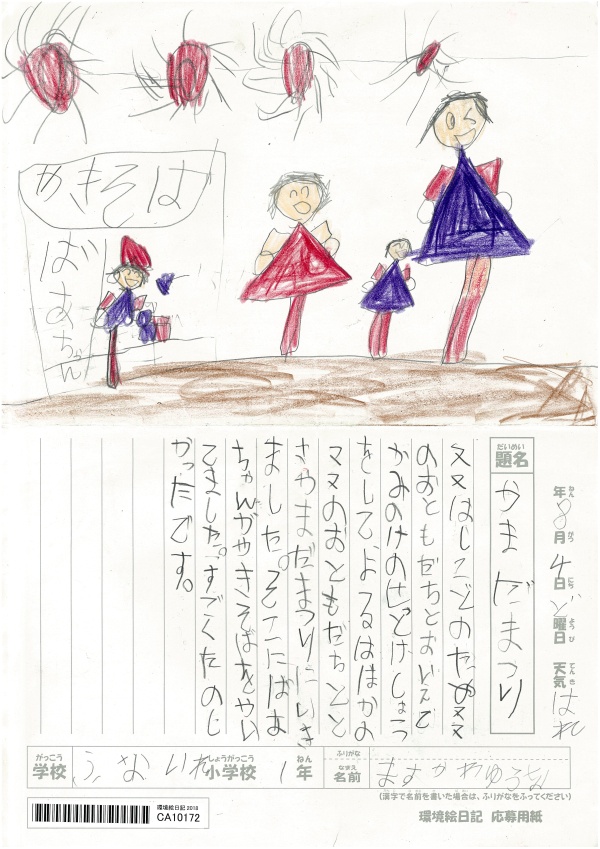 やきそば
ばあちゃん
年8月4日ど曜日 天気はれ
ねん がつ にち ようび てんき
だいめい
題名
やまだまつり
ママはしごとのためママ
のおともだちとおいえで
かみのけのせっとけしょう
をしてよるは
ママのおともだちと
やまだまつりにいき
ました。そこにばあ
ちゃんがやきそばをやい
てました。すごくたのし
かったです。
がっこう しょうがっこう ねん ふりがな なまえ
学校 ふないれ小学校 1年 名前
(漢字で名前を書いた場合は、ふりがなをふってください)
環境絵日記 2018
CA10172
環境絵日記 応募用紙